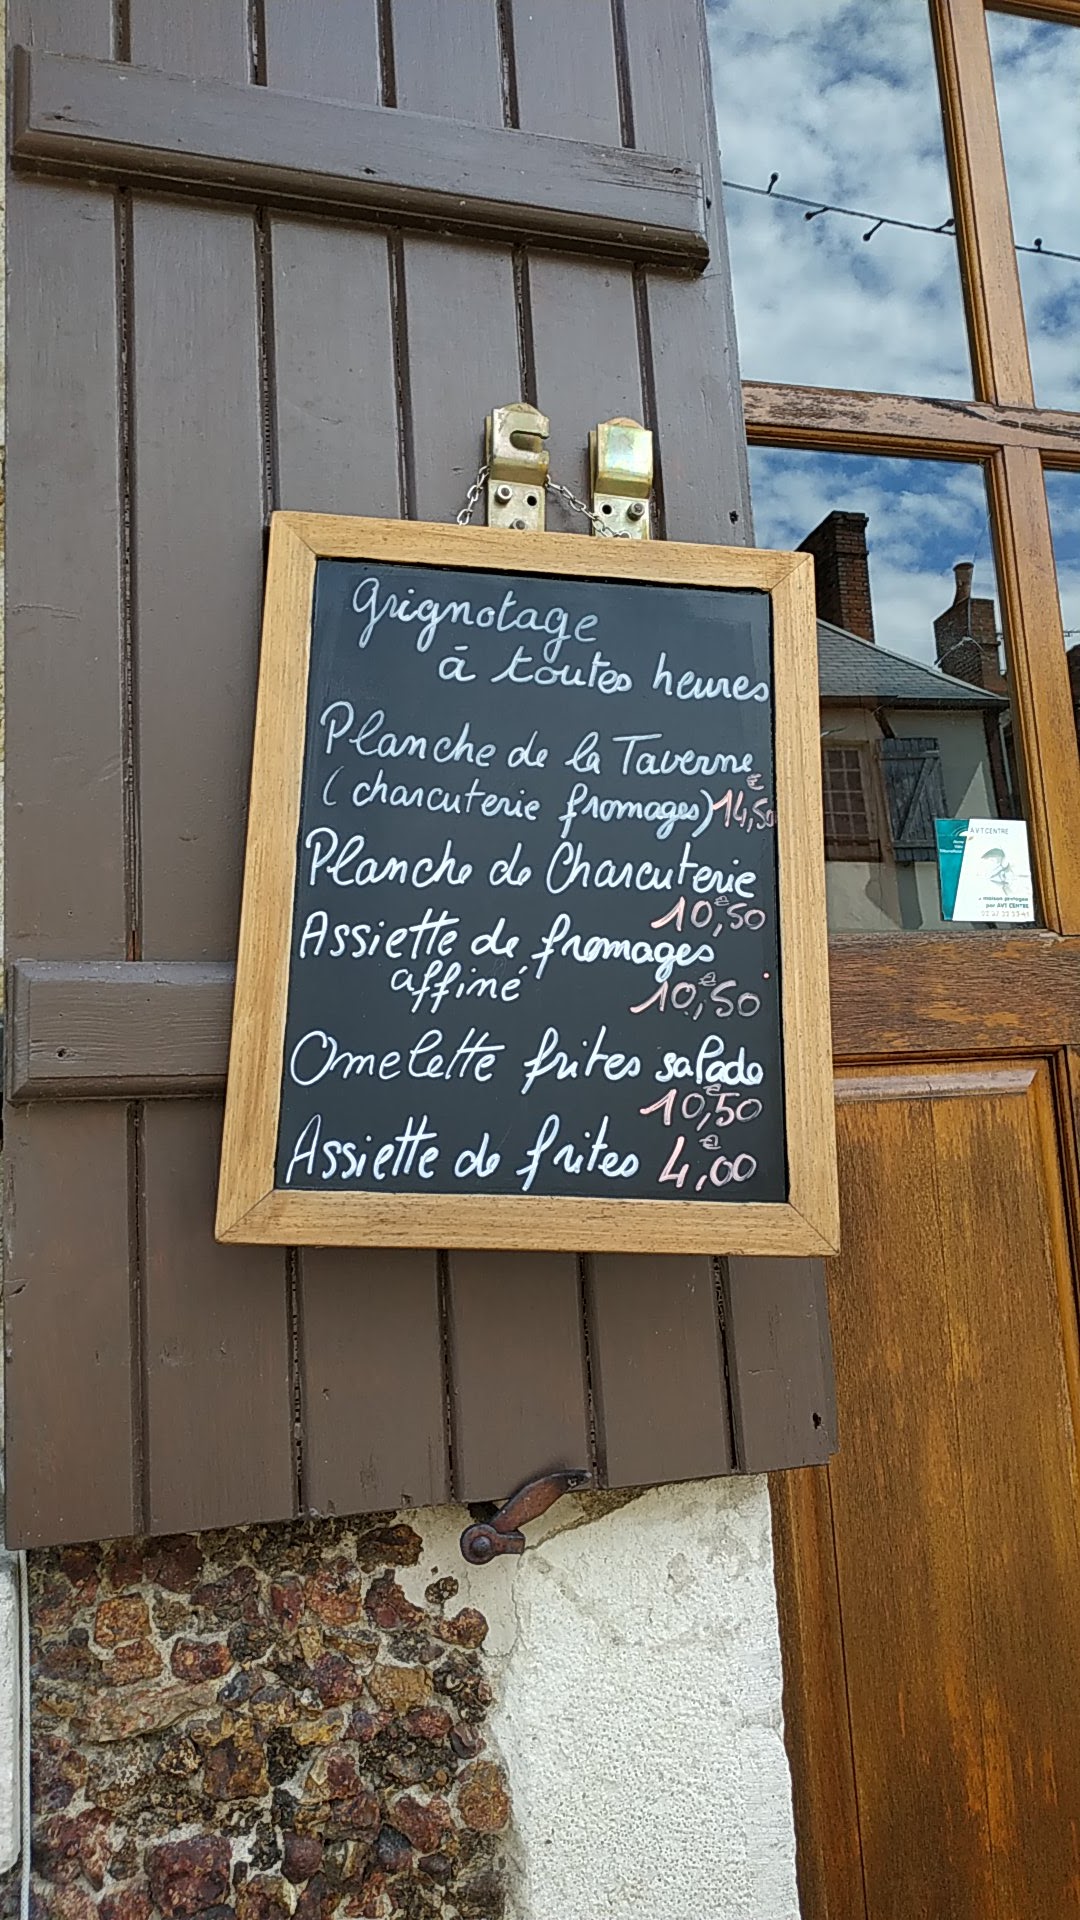 Grignotage
à toutes heures
Planche de la Taverne
(charcuterie fromages) 14,50€
Planche de Charcuterie
10,50€
Assiette de fromages
affiné 10,50€
Omelette frites salade
10,50€
Assiette de frites 4,00€
AVT CENTRE
par AVT CENTRE